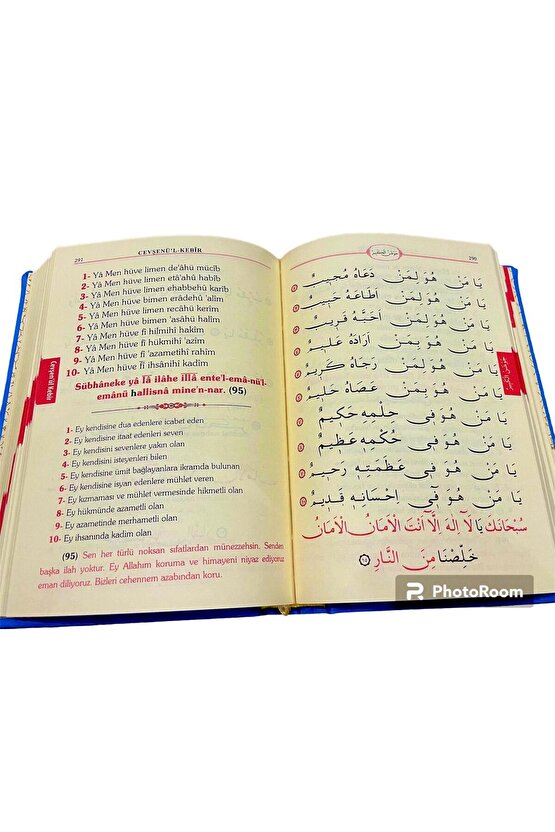 291
CEVŞENÜ'L-KEBÎR
1- Yâ Men hüve limen de'âhü mücîb
2- Yâ Men hüve limen etâ'ahû habîb
3- Yâ Men hüve limen ehabbehû karîb
4- Yâ Men hüve bimen erâdehû 'alîm
5- Yâ Men hüve limen recâhü kerîm
6- Yâ Men hüve bimen 'asâhü halîm
7- Yâ Men hüve fî hilmihî hakîm
8- Yâ Men hüve fî hükmihî 'azîm
9- Yâ Men hüve fî 'azametihî rahîm
10- Yâ Men hüve fî ihsânihî kadîm
Sübhâneke yâ lâ ilâhe illâ ente'l-emâ-nü'l-
emânü hallisnâ mine'n-nar. (95)
1- Ey kendisine dua edenlere icabet eden
2- Ey kendisine itaat edenleri seven
3- Ey kendisini sevenlere yakın olan
4- Ey kendisini isteyenleri bilen
5- Ey kendisine ümit bağlayanlara ikramda bulunan
6- Ey kendisine isyan edenlere mühlet veren
7- Ey kızmaması ve mühlet vermesinde hikmetli olan
8- Ey hükmünde azametli olan
9- Ey azametinde merhametli olan
10- Ey ihsanında kadim olan
(95) Sen her türlü noksan sıfatlardan münezzehsin. Senden
başka ilah yoktur. Ey Allahım koruma ve himayeni niyaz ediyoruz
eman diliyoruz. Bizleri cehennem azabından koru.
Cevşenü'l Kebîr
290
يَا مَنْ هُوَ لِمَنْ دَعَاهُ مُجِيبٌ
يَا مَنْ هُوَ لِمَنْ اَطَاعَهُ حَبِيبٌ
يَا مَنْ هُوَ لِمَنْ اَحَبَّهُ قَرِيبٌ
يَا مَنْ هُوَ بِمَنْ اَرَادَهُ عَلِيمٌ
يَا مَنْ هُوَ لِمَنْ رَجَاهُ كَرِيمٌ
يَا مَنْ هُوَ بِمَنْ عَصَاهُ حَلِيمٌ
يَا مَنْ هُوَ فِي حِلْمِهِ حَكِيمٌ
يَا مَنْ هُوَ فِي حُكْمِهِ عَظِيمٌ
يَا مَنْ هُوَ فِي عَظَمَتِهِ رَحِيمٌ
يَا مَنْ هُوَ فِي اِحْسَانِهِ قَدِيمٌ
سُبْحَانَكَ يَا لَا اِلٰهَ اِلَّا اَنْتَ الْاَمَانُ الْاَمَانُ
خَلِّصْنَا مِنَ النَّارِ
PhotoRoom